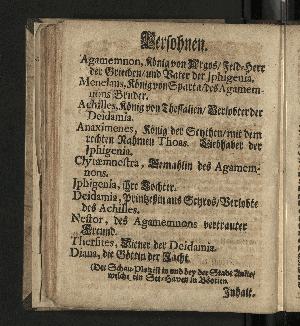 Persohnen.
Agamemnon, König von Argos/ Feld-Herr
der Griechen/ und Vater der Jphigenia.
Menelaus, König von Sparta/ des Agamem-
nons Bruder.
Achilles, König von Thessalien/ Verlobter der
Deidamia.
Anaximenes, König der Scythen/ mit dem
rechten Nahmen Thoas. Liebhaber der
Jphigenia.
Clytæmnestra, Gemahlin des Agamem-
nons.
Jphigenia, ihre Tochter.
Deidamia, Printzeßin aus Scyros/ Verlobte
des Achilles.
Nestor, des Agamemnons vertrauter
Freund.
Thersites, Diener der Deidamia.
Diana, die Göttin der Jacht.
(Der Schau-Platz ist in und bey der Stadt Aulis/
welche ein See-Haven in Böotien.
Jnhalt.